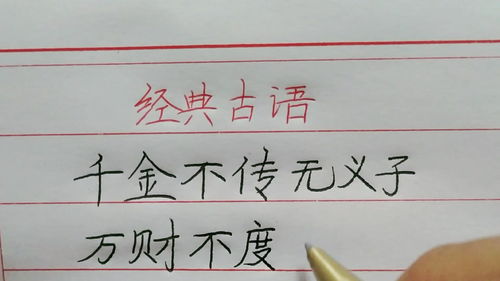 经典古语
千金不传无义子
万财不度